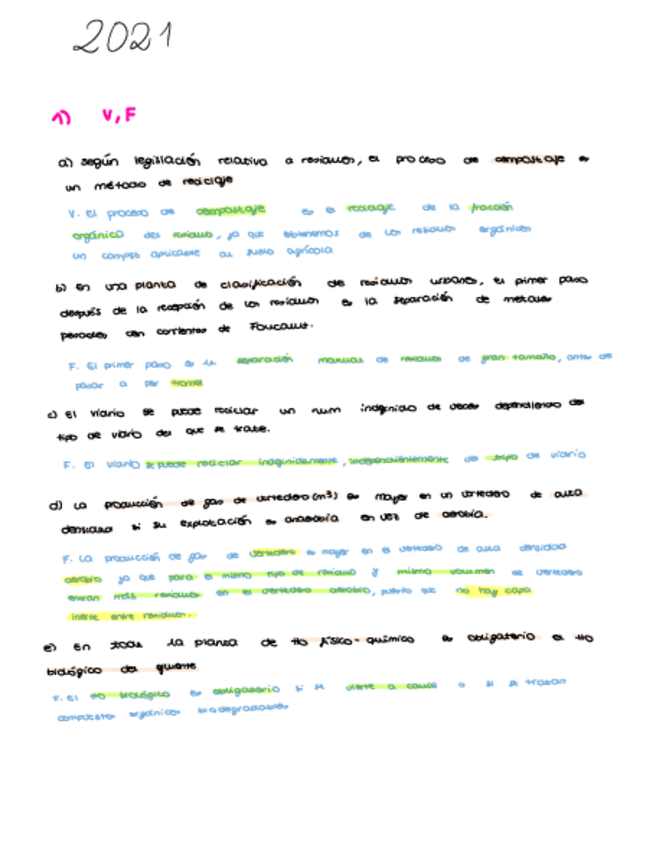 2021
1) V, F
a) Según legislación relativa a residuos, el proceso de compostaje es
un método de reciclaje
V. El proceso de compostaje es el reciclaje de la fracción
orgánica del residuo, ya que obtenemos de los residuos orgánicos
un compost aplicable al suelo agrícola
b) En una planta de clasificación de residuos urbanos, el primer paso
después de la recepción de los residuos es la separación de metales
pesados, con corrientes de Foucault.
F. El primer paso es la separación manual de residuos de gran tamaño, antes de
pasar a per tromel
c) El vidrio se puede reciclar un num indefinido de veces dependiendo del
tipo de vidrio del que se trate.
F. El vidrio se puede reciclar indefinidamente, independientemente del tipo de vidrio
d) La producción de gas de vertedero (m³) es mayor en un vertedero de alta
densidad si su explotación es anaerobia en vez de aerobia.
F. La producción de gas de vertedero es mayor en el vertedero de alta densidad
aerobio ya que para el mismo tipo de residuo y mismo volumen de vertedero
entran más residuos en el vertedero aerobio, puesto que no hay capa
inerte entre residuos.
e) En toda la planta de tto físico-químico es obligatorio el tto
biológico del efluente
F. El tto biológico es obligatorio si se vierte a cauce o si se tratan
compuestos orgánicos biodegradables